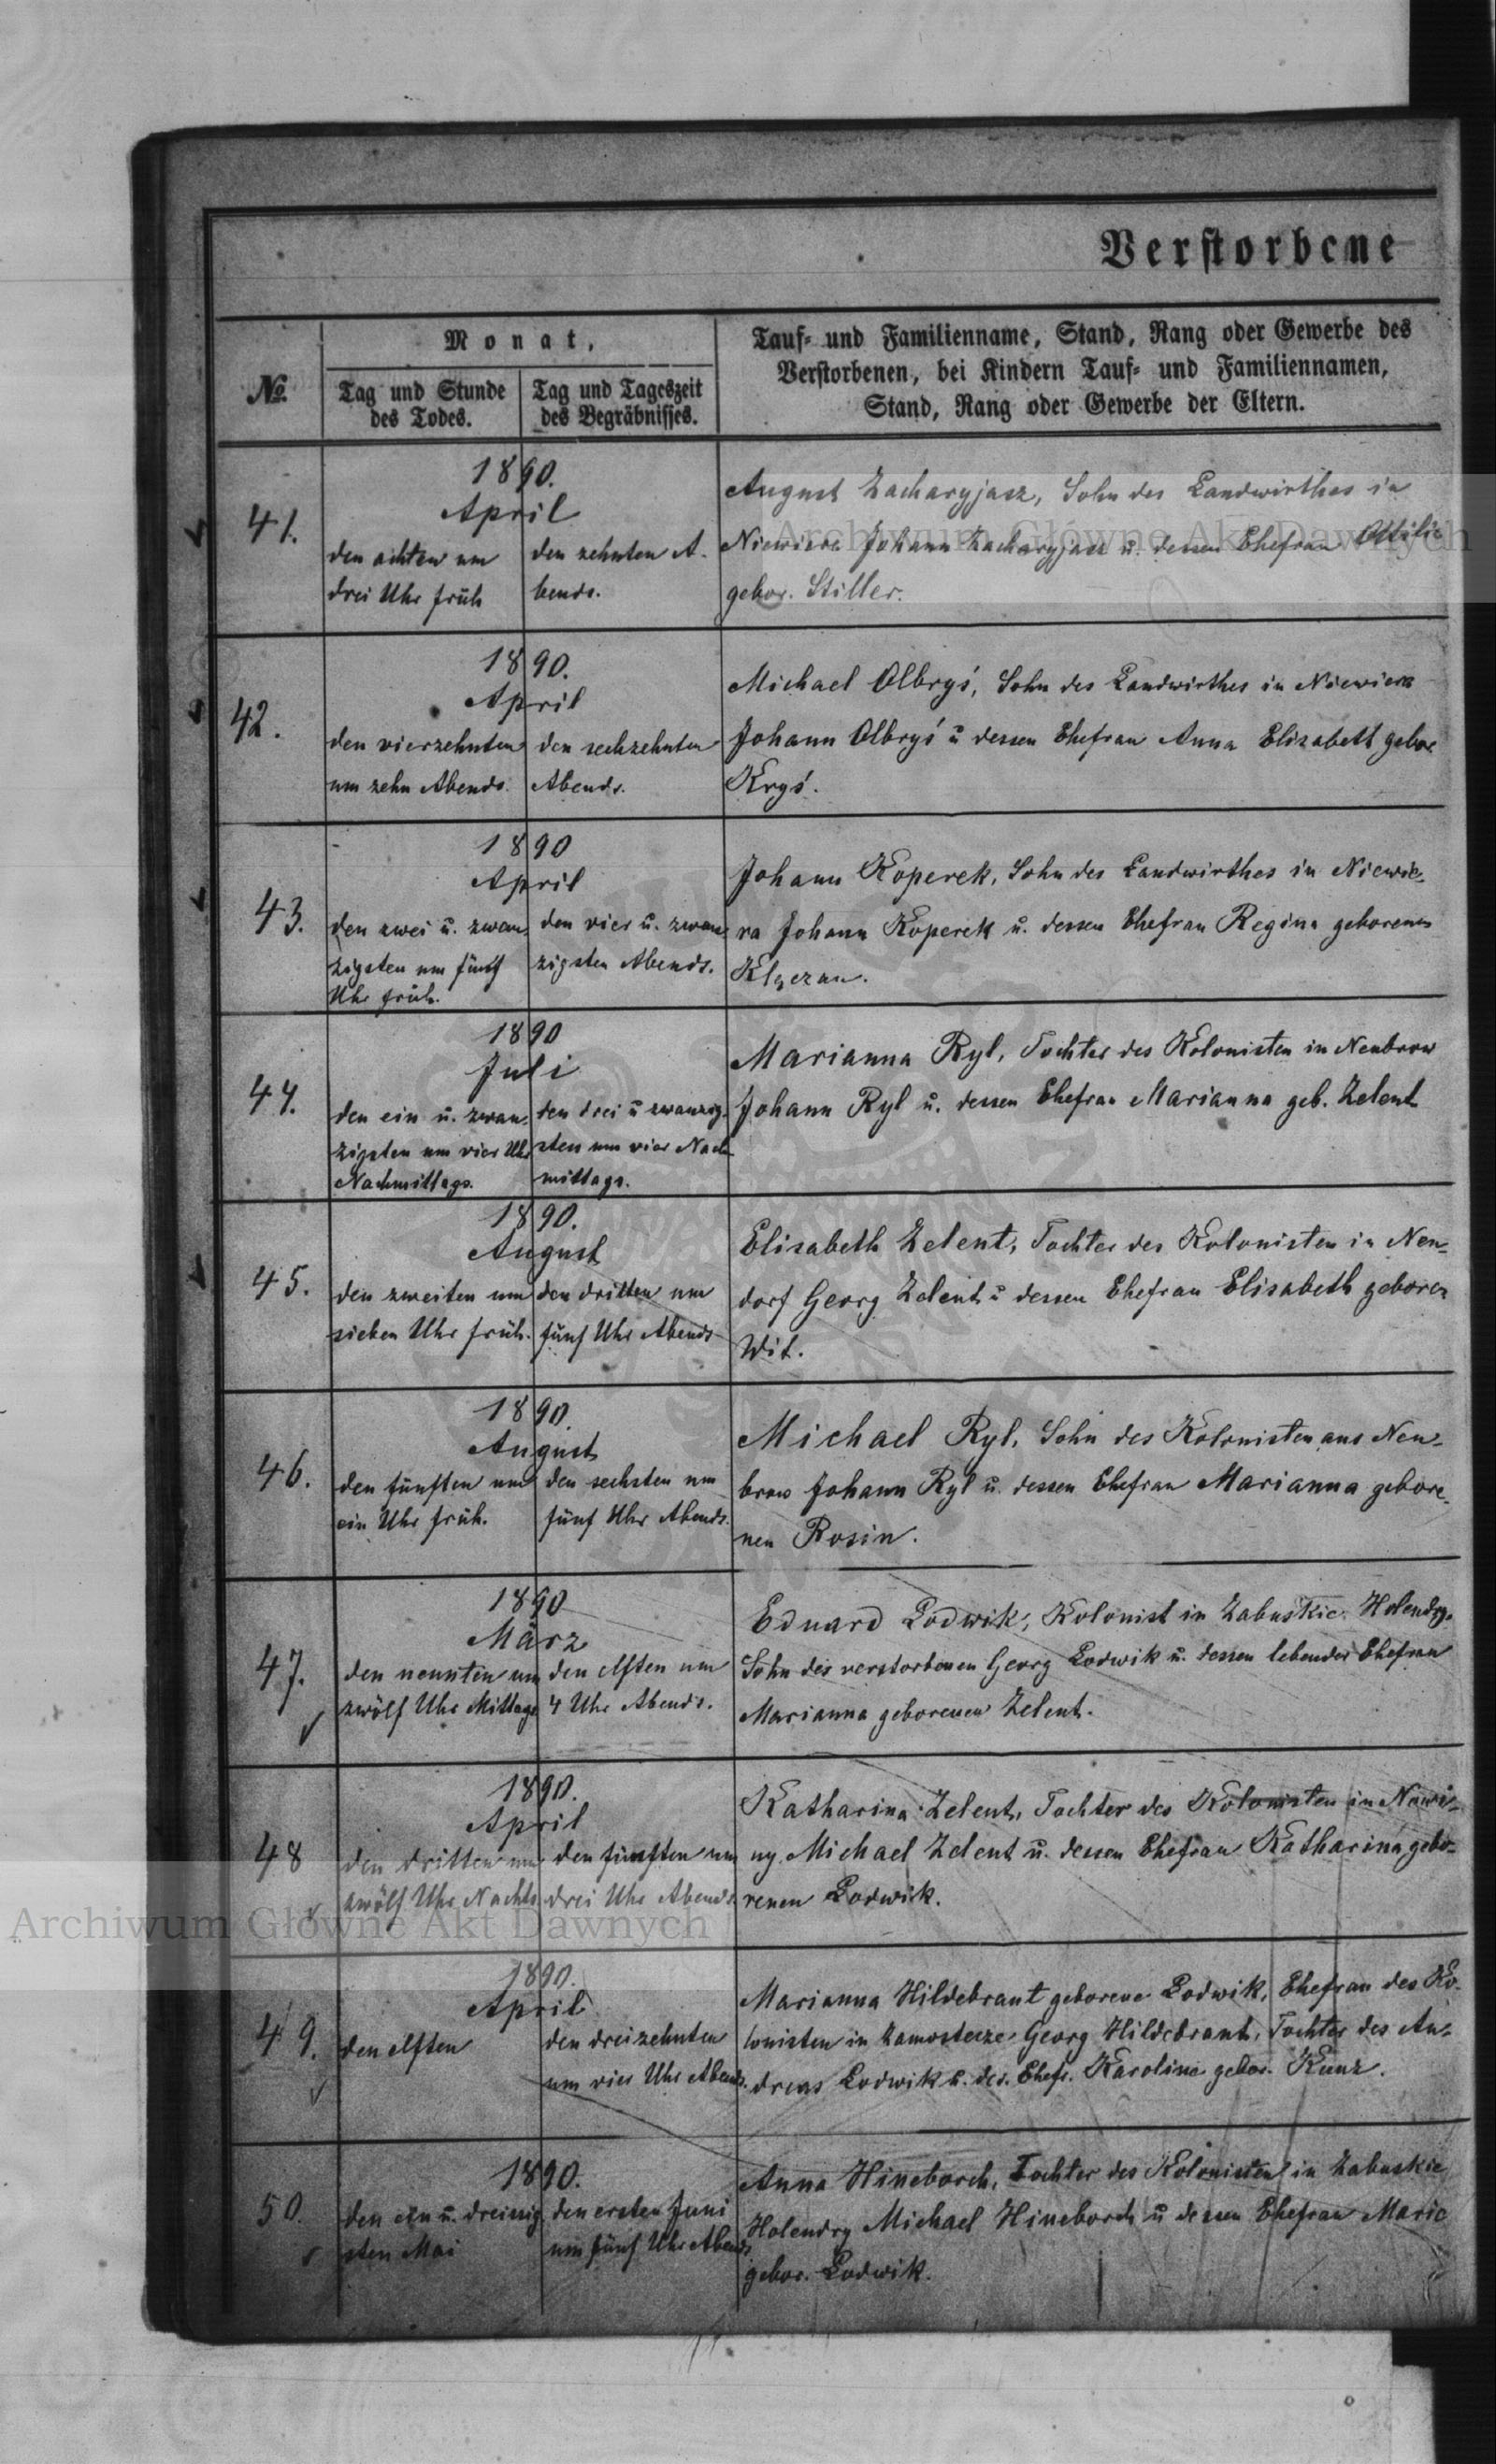 Verstorbene
No.
Monat,
Tag und Stunde
des Todes.
Tag und Tageszeit
des Begräbnisses.
Tauf- und Familienname, Stand, Rang oder Gewerbe des
Verstorbenen, bei Kindern Tauf- und Familiennamen,
Stand, Rang oder Gewerbe der Eltern.
41.
1890.
April
den achten um
drei Uhr früh
den zehnten A-
bends.
August Zacharyjasz, Sohn des Landwirthes in
Niewiera Johann Zacharyjasz u. dessen Ehefrau Ottilie
gebor. Stiller.
42.
1890.
April
den vierzehnten
um zehn Abends.
den sechzehnten
Abends.
Michael Olbryś, Sohn des Landwirthes in Niewiera
Johann Olbryś u dessen Ehefrau Anna Elisabeth gebor
Kryś.
43.
1890
April
den zwei u. zwan-
zigsten um fünf
Uhr früh.
den vier u. zwan-
zigsten Abends.
Johann Koperek, Sohn des Landwirthes in Niewie-
ra Johann Koperek u. dessen Ehefrau Regina geborenen
44.
1890
Juli
den ein u. zwan-
zigsten um vier Uhr
Nachmittags.
den drei u zwanzig-
sten um vier Nach
mittags.
Marianna Ryl, Tochter des Kolonisten in Neubrow
Johann Ryl u. dessen Ehefrau Marianna geb. Zelent
45.
1890.
August
den zweiten um
sieben Uhr früh.
den dritten um
fünf Uhr Abends
Elisabeth Zelent, Tochter des Kolonisten in Neu-
dorf Georg Zelent u dessen Ehefrau Elisabeth geboren
Wit.
46.
1890.
August
den fünften um
ein Uhr früh.
den sechsten um
fünf Uhr Abends.
Michael Ryl, Sohn des Kolonisten aus Neu-
brow Johann Ryl u. dessen Ehefrau Marianna gebore-
nen Rosin.
47.
1890
März
den neunten um
zwölf Uhr Mittags
den elften um
4 Uhr Abends.
Eduard Lodwik, Kolonist in Zabuskie Holendry.
Sohn des verstorbenen Georg Lodwik u. dessen lebender Ehefrau
Marianna geborenen Zelent.
48
1890.
April
den dritten um
zwölf Uhr Nachts
den fünften um
drei Uhr Abends.
Katharina Zelent, Tochter des Kolonisten in Nowi-
ny Michael Zelent u. dessen Ehefrau Katharina gebo-
renen Lodwik.
49.
1890.
April
den elften
den dreizehnten
um vier Uhr Abends.
Marianna Hildebrant geborene Lodwik, Ehefrau des Ko-
lonisten in Zamostecze Georg Hildebrant, Tochter des An-
dreas Lodwik u. des. Ehefr. Karoline gebor. Kunz.
50.
1890.
den ein u. dreissig
sten Mai
den ersten Juni
um fünf Uhr Abends
Anna Hineborch, Tochter des Kolonisten in Zabuskie
Holendry Michael Hineborch u dessen Ehefrau Marie
gebor. Lodwik.
Archiwum Główne Akt Dawnych
Archiwum Główne Akt Dawnych